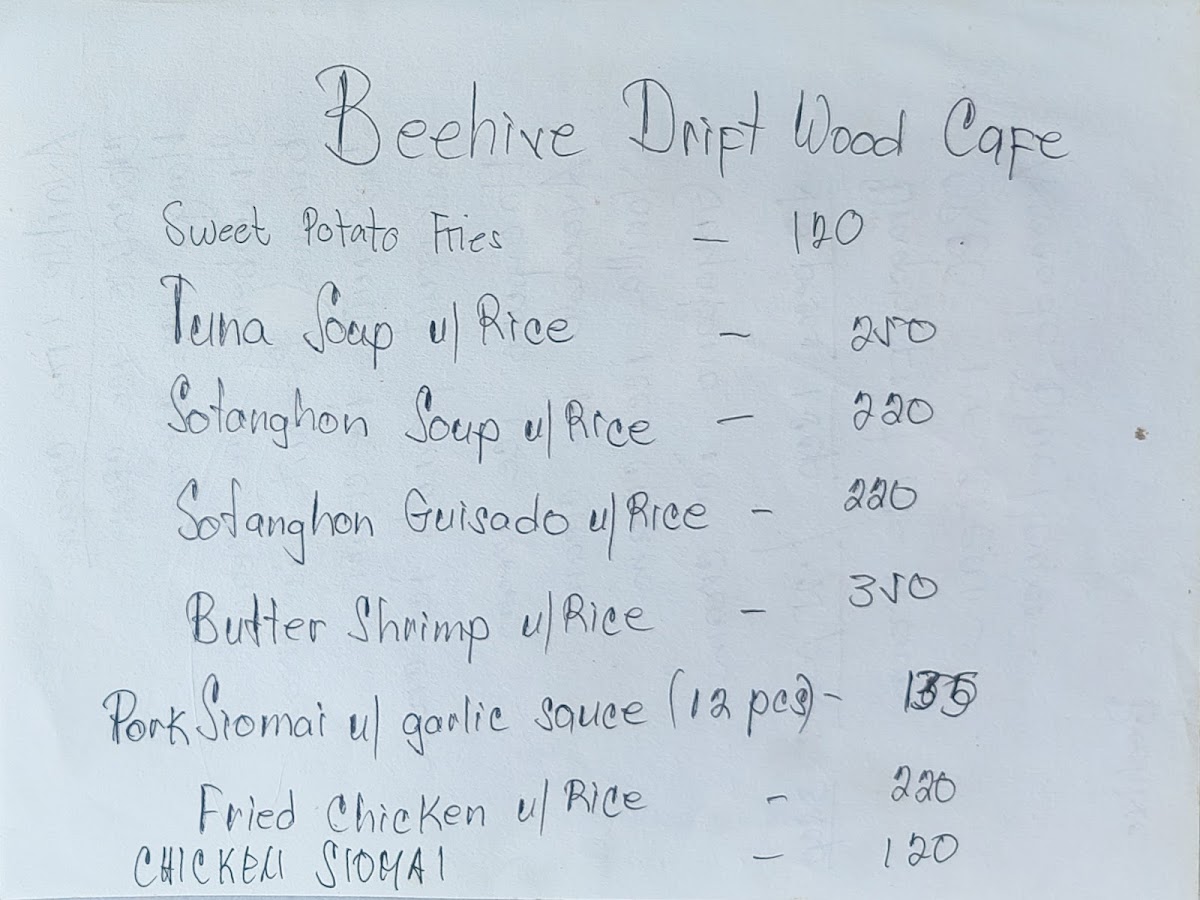 Beehive Drift Wood Cafe
Sweet Potato Fries - 120
Tuna Soup w/ Rice - 250
Sotanghon Soup w/ Rice - 220
Sotanghon Guisado w/ Rice - 220
Butter Shrimp w/ Rice - 350
Pork Siomai w/ garlic sauce (12 pcs) -
Fried Chicken w/ Rice - 220
CHICKEN SIOMAI - 120